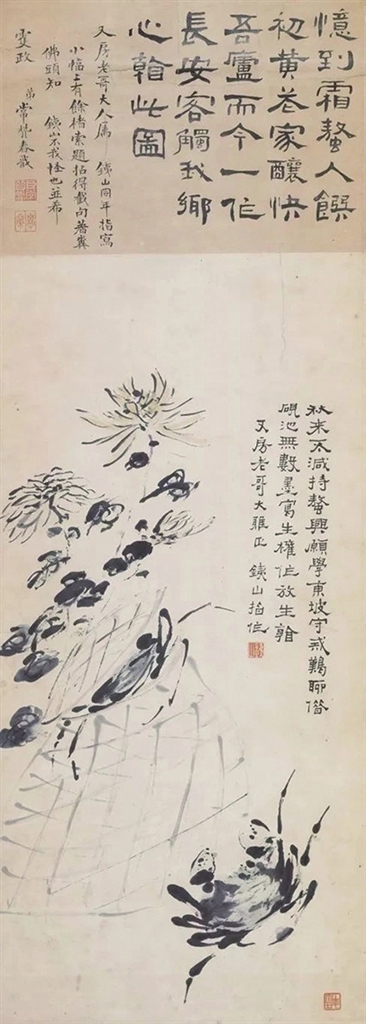 憶到霜螯人饌
初黃茶家釀快
吾廬而今一作
長安客觸我鄉
心艙此圖
又房老哥大人属 鐵山同年指寫
小幅上有餘楮索題拈得截句著糞
佛頭知 鐵山不我怪也並希
雯政 弟常豐春咸
秋來不減持螯興願學東坡守戒難聊借
硯池無數墨寫生權作放生
又房老哥大雅正 鐵山指作